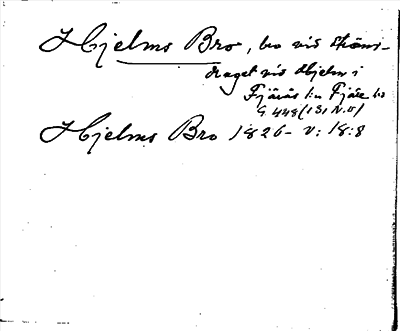 Hjelms Bro, bro vid Ström-
draget vid Hjelm i
Fjärås sn Fjäre hd
G 448 (1S1 N.V)
Hjelms Bro 1826- V: 18:8